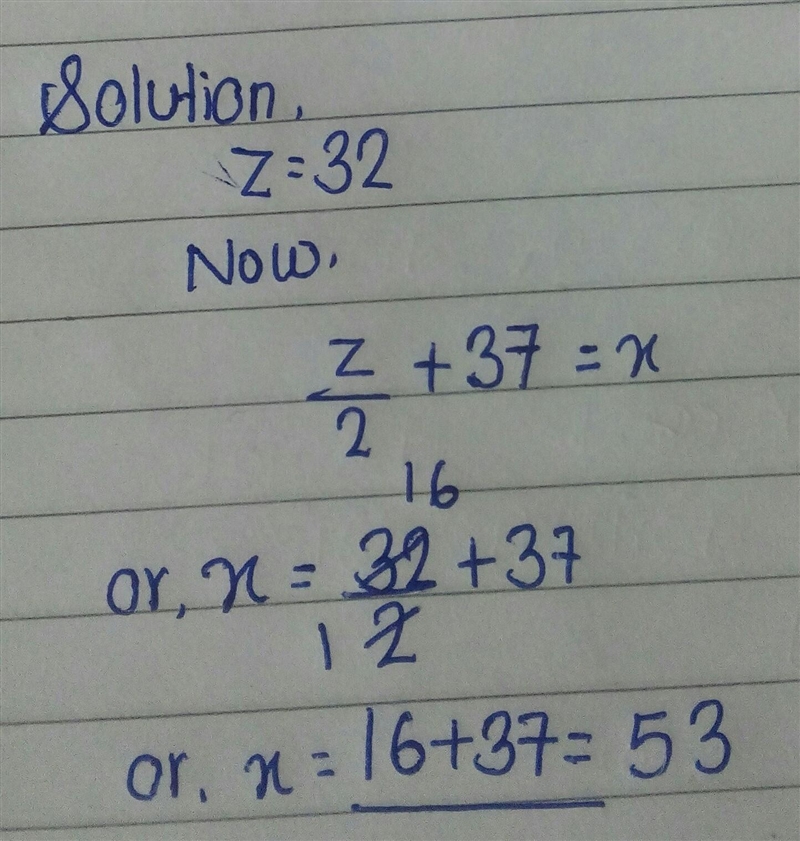 Solution,
Z=32
Now,
Z/2 + 37 = x
16
or, x = 32/2 + 37
1
or, x = 16+37= 53